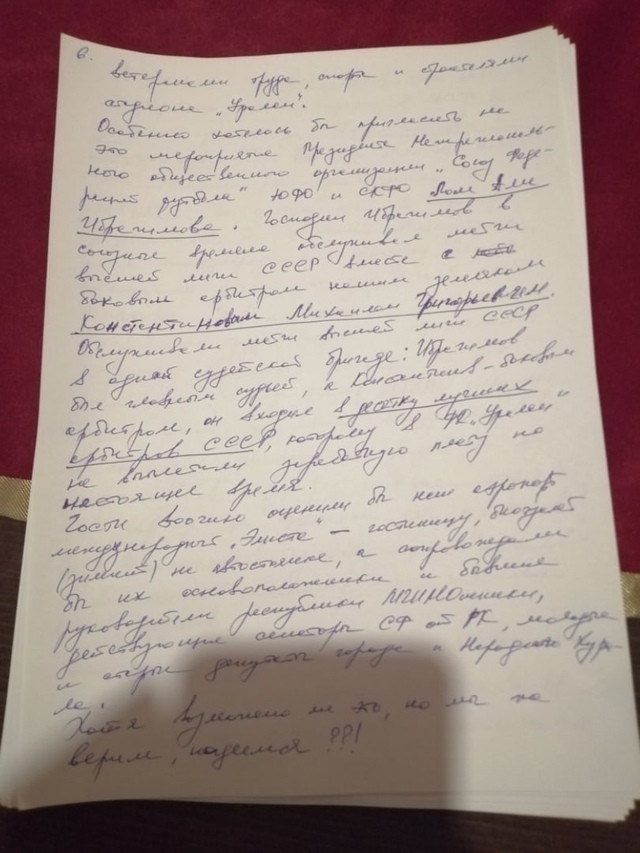 6.
ветеранами труда, спорта и строителями
стадиона „Уралан".
Особенно хотелось бы пригласить на
это мероприятие Президента Межрегиональ-
ного общественного организации „Союз Феде-
раций футбола" ЮФО и СКФО Лом Али
Ибрагимова. Господин Ибрагимов в
союзные времена обслуживал матчи
высшей лиги СССР вместе с
боковым арбитром нашим земляком
Константиновым Михаилом Григорьевичем.
Обслуживали матчи высшей лиги СССР
в одной судейской бригаде: Ибрагимов
был главным судьей, а Константинов - боковым
арбитром, он входил в десятку лучших
арбитров СССР, которому в ФК „Уралан"
не выплатили заработную плату по
настоящее время.
Гости воочию оценили бы наш аэропорт
международный „Элиста" — гостиницу,
(зимний) на автостоянке, а сопровождали
бы их основоположники и бывшие
руководители республики МИМОшники,
действующие сенаторы СФ от РК, молодые
и старые депутаты города и Народного Хура-
ла.
Хотя возможно ли это, но мы на
верим, надеемся ??!